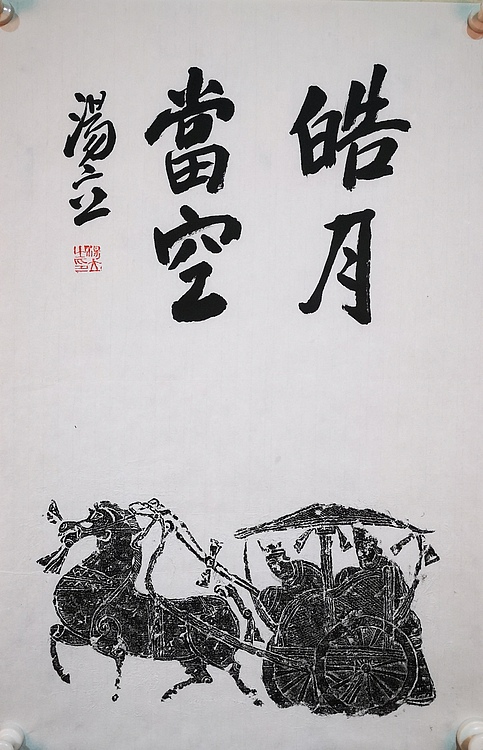 皓月
當空
湯立